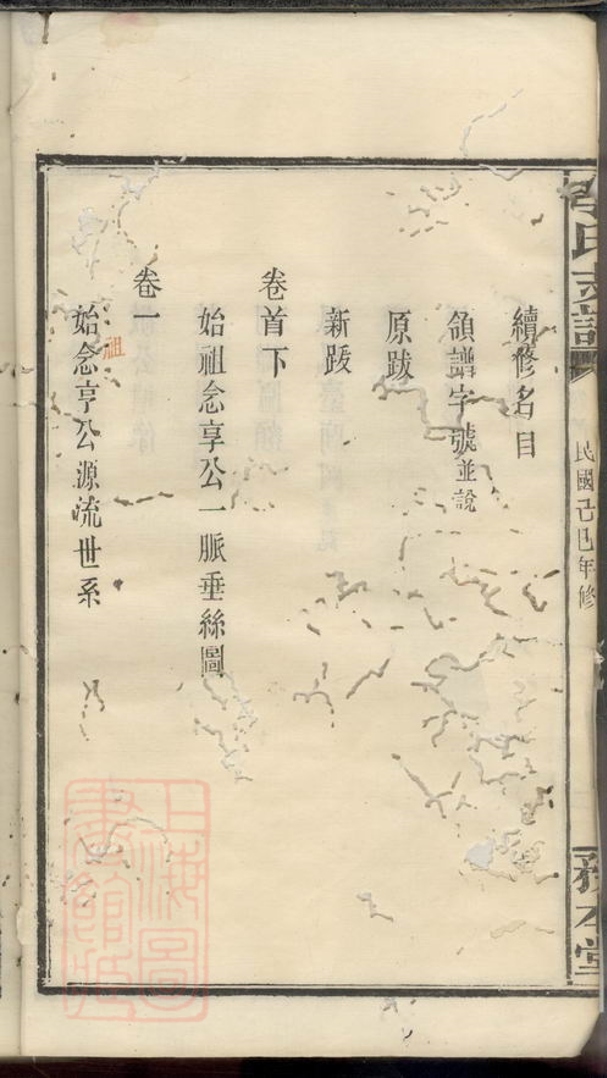 氏支譜
民國己巳年修
務本堂
續修名目
領譜字號並說
原跋
新跋
卷首下
始祖念享公一脈垂絲圖
卷一
始祖念亨公源流世系
上海圖書館藏